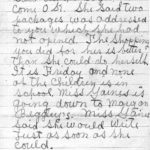 Come O.K. She said two
packages was addressed
to you which she had
not opened. The shopping
you did for her is better
than she could do herself.
It is Friday and none
of the children is in
school Miss Janes is
going down to
Miss
said she would write
just as soon as she
could.